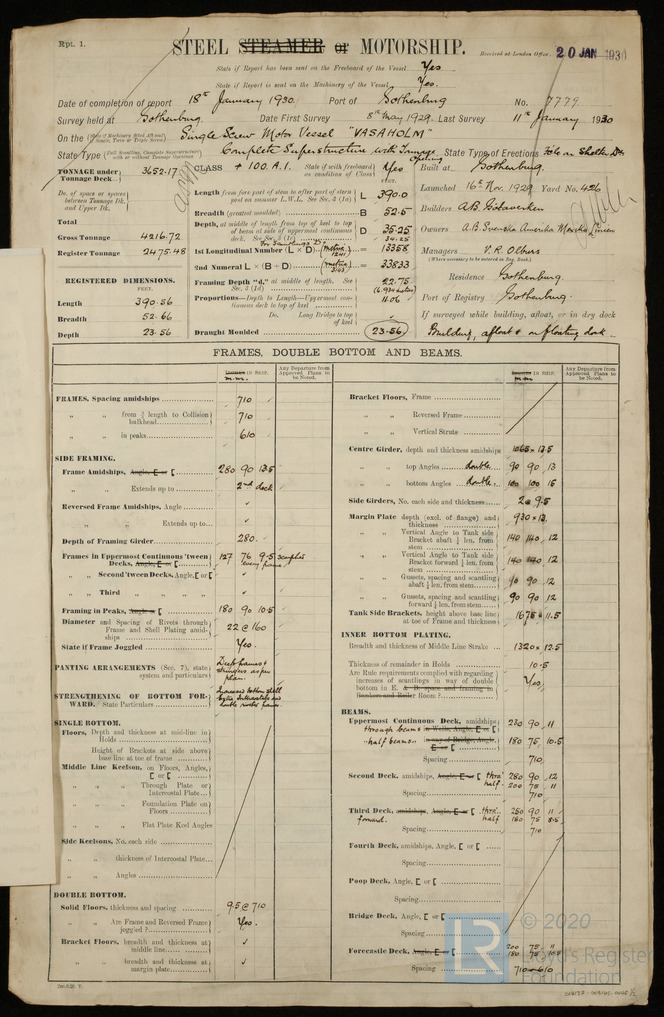 Rpt. 1.
STEEL STEAMER or MOTORSHIP.
Received at London Office 20 JAN 1930
State if Report has been sent on the Freeboard of the Vessel Yes
State if Report is sent on the Machinery of the Vessel Yes.
Date of completion of report 18th January 1930. Port of Gothenburg No. 7779
Survey held at Gothenburg. Date First Survey 8th May 1929. Last Survey 11th January 1930
On the Single Screw Motor Vessel "VASAHOLM"
State Type Complete Superstructure with Tonnage Opening State Type of Erections Fo'le on Shelter Dk
TONNAGE under Tonnage Deck 3652.17
CLASS + 100.A.1. State if with freeboard as condition of Class Yes
Built at Gothenburg.
Launched 16th Nov. 1929. Yard No. 426
Do. of space or spaces between Tonnage Dk. and Upper Dk.
Total
Gross Tonnage 4216.72
Register Tonnage 2475.48
REGISTERED DIMENSIONS.
FEET.
Length 390.56
Breadth 52.66
Depth 23.56
Length from fore part of stem to after part of stern post on summer L.W.L. See Sec. 3 (1a) L 390.0
Breadth (greatest moulded) B 52.5
Depth, at middle of length from top of keel to top of beam at side of uppermost continuous deck. See Sec. 3 (1c) D 35.25
34.25
1st Longitudinal Number (L × D) = 13358
2nd Numeral L × (B + D) = 33833
Framing Depth "d," at middle of length. See Sec. 3 (1d) 22.75
Proportions—Depth to Length—Uppermost continuous deck to top of keel 11.06
Do. Long Bridge to top of keel
Draught Moulded 23.56
Builders A.B. Götaverken
Owners A.B. Svenska Amerika Mexiko Linien
Managers P.R. Olbers
(Where necessary to be entered in Reg. Book.)
Residence Gothenburg.
Port of Registry Gothenburg.
If surveyed while building, afloat, or in dry dock
Building, afloat & on floating dock.
FRAMES, DOUBLE BOTTOM AND BEAMS.
Any Departure from Approved Plans to be Noted.
Any Departure from Approved Plans to be Noted.
FRAMES, Spacing amidships 710
„ „ from ⅗ length to Collision bulkhead 710
„ „ in peaks 610
SIDE FRAMING.
Frame Amidships, Angle, E or [ 280 90 13.5
„ „ Extends up to 2nd deck
Reversed Frame Amidships, Angle
„ „ Extends up to
Depth of Framing Girder 280.
Frames in Uppermost Continuous 'tween Decks, Angle, E or [ 127 76 9.5 every frame
„ „ Second 'tween Decks, Angle, E or [
„ „ Third „ „
Framing in Peaks, Angle or [ 180 90 10.5
Diameter and Spacing of Rivets through Frame and Shell Plating amidships 22 @ 160
State if Frame Joggled Yes.
PANTING ARRANGEMENTS (Sec. 7), state system and particulars Deep frames & stringers as per plan.
STRENGTHENING OF BOTTOM FORWARD. State Particulars
SINGLE BOTTOM.
Floors, Depth and thickness at mid-line in Holds
Height of Brackets at side above base line at toe of frame
Middle Line Keelson, on Floors, Angles, E or [
„ „ Through Plate or Intercostal Plate
„ „ Foundation Plate on Floors
„ „ Flat Plate Keel Angles
Side Keelsons, No. each side
„ „ thickness of Intercostal Plate
„ „ Angles
DOUBLE BOTTOM.
Solid Floors, thickness and spacing 9.5 @ 710
„ „ Are Frame and Reversed Frame joggled? Yes.
Bracket Floors, breadth and thickness at middle line
„ „ breadth and thickness at margin plate
Bracket Floors, Frame
„ „ Reversed Frame
„ „ Vertical Struts
Centre Girder, depth and thickness amidships 1065 × 13.5
„ „ top Angles double 90 90 13
„ „ bottom Angles double 100 100 16
Side Girders, No. each side and thickness 2 @ 9.5
Margin Plate depth (excl. of flange) and thickness 930 × 13
„ „ Vertical Angle to Tank side Bracket abaft ¼ len. from stem 140 140 12
„ „ Vertical Angle to Tank side Bracket forward ¼ len. from stem 140 140 12
„ „ Gussets, spacing and scantling abaft ¼ len. from stem 90 90 12
„ „ Gussets, spacing and scantling forward ¼ len. from stem 90 90 12
Tank Side Brackets, height above base line at toe of Frame and thickness 1675 × 11.5
INNER BOTTOM PLATING.
Breadth and thickness of Middle Line Strake 1320 × 12.5
Thickness of remainder in Holds 10.5
Are Rule requirements complied with regarding increases of scantlings in way of double bottom in E. & B. space and framing in bunkers and Boiler Room? Yes
BEAMS.
Uppermost Continuous Deck, amidships through beams 230 90 11
half beams in way of Bridge, Angle, E or [ 180 75 10.5
Spacing 710
Second Deck, amidships, Angle, E or [ thro' 280 90 12
half 200 75 11
Spacing 710
Third Deck, amidships, Angle, E or [ thro. 250 90 11
forward. half 150 75 8.5
Spacing 710
Fourth Deck, amidships, Angle, E or [
Spacing
Poop Deck, Angle, E or [
Spacing
Bridge Deck, Angle, E or [
Spacing
Forecastle Deck, Angle, E or [ 200 75
180 75
Spacing 710 & 610
© 2020
Lloyd's Register
Foundation